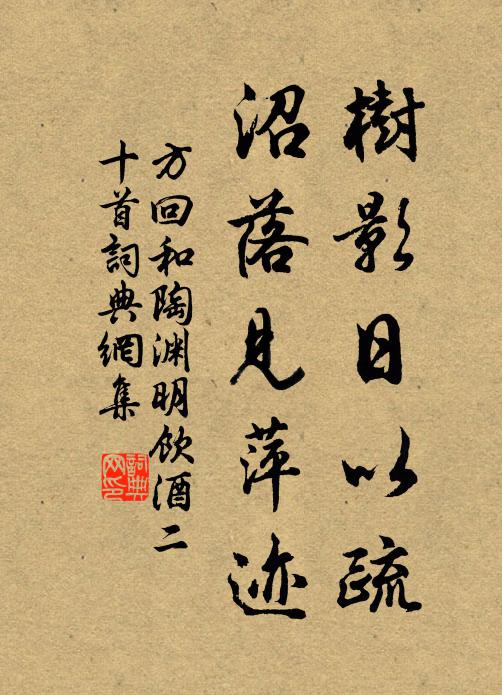 樹影日以疏
沼落見萍迹
方回和陶渊明飲酒二
十首詞典網集
詞典
网印